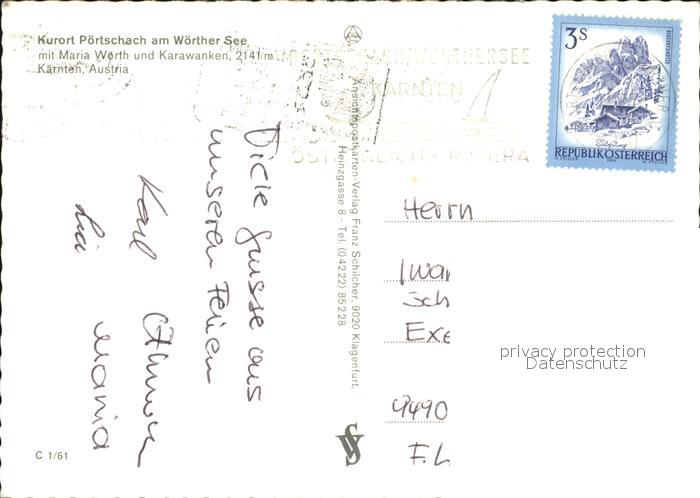 Kurort Pörtschach am Wörther See
mit Maria Wörth und Karawanken, 2141 m
Kärnten, Austria
KÄRNTEN
ÖSTERREICHS RIVIERA
3 S
REPUBLIK ÖSTERREICH
Ansichtspostkarten-Verlag Franz Schilcher, 9020 Klagenfurt,
Heinzgasse 8 - Tel. (0 42 22) 85 2 28
Viele Grüsse aus
unseren Ferien
Karl
Maria
Herrn
Iwan
Sch
Exe
9490
F.L
privacy protection
Datenschutz
C 1/61